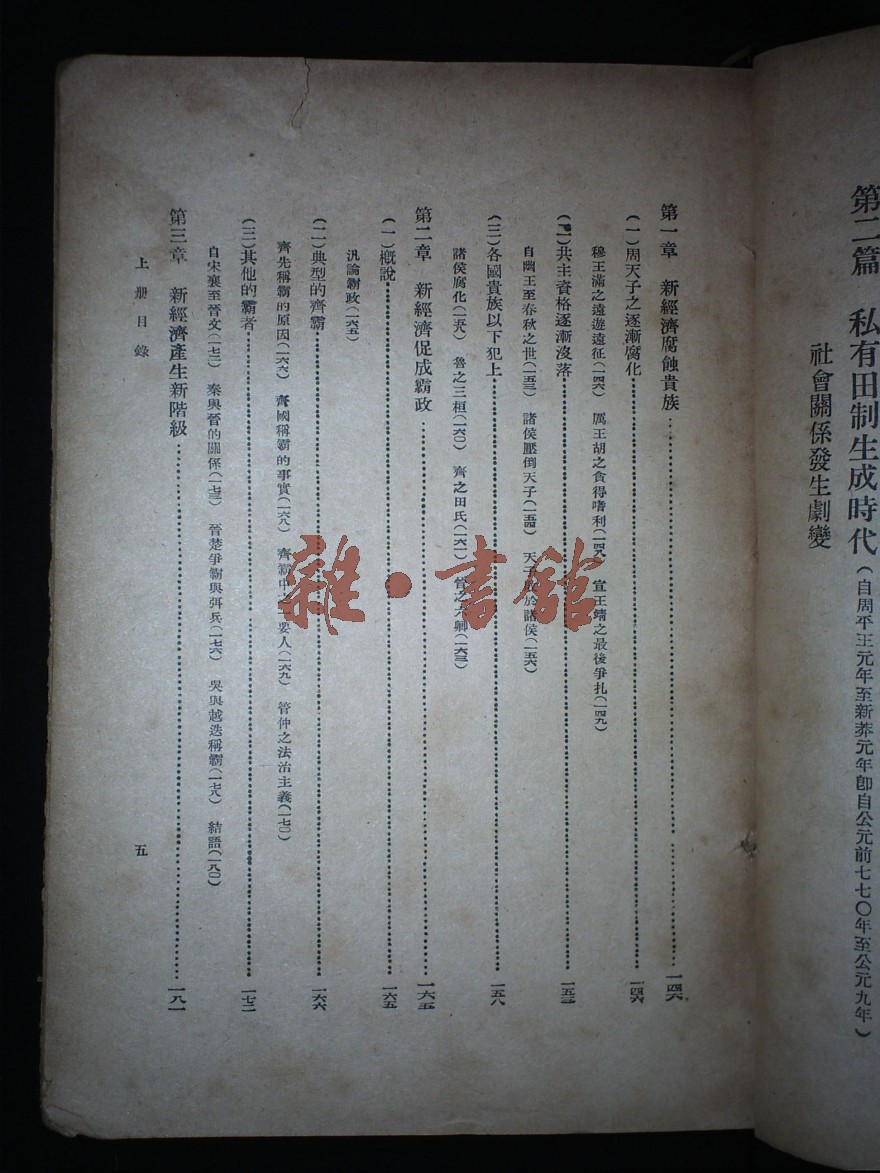 第二篇 私有田制生成時代(自周平王元年至新莽元年卽自公元前七七〇年至公元九年)
社會關係發生劇變
第一章 新經濟腐蝕貴族……一四六
(一)周天子之逐漸腐化……一四六
穆王滿之遠遊遠征(一四六) 厲王胡之貪得嗜利(一四八) 宣王靖之最後爭扎(一四九)
(二)共主資格逐漸沒落……一五三
自幽王至春秋之世(一五三) 諸侯壓倒天子(一五四) 天子 於諸侯(一五六)
(三)各國貴族以下犯上……一五八
諸侯腐化(一五八) 魯之三桓(一六〇) 齊之田氏(一六一) 晉之六卿(一六三)
第二章 新經濟促成霸政……一六五
(一)槪說……一六五
汎論霸政(一六五)
(二)典型的齊霸……一六六
齊先稱霸的原因(一六六) 齊國稱霸的事實(一六八) 齊霸中之 要人(一六九) 管仲之法治主義(一七〇)
(三)其他的霸者……一七二
自宋襄至晉文(一七二) 秦與晉的關係(一七三) 晉楚爭霸與弭兵(一七六) 吳與越迭稱霸(一七八) 結語(一八〇)
第三章 新經濟產生新階級……一八一
上册目錄
五
雜·書館